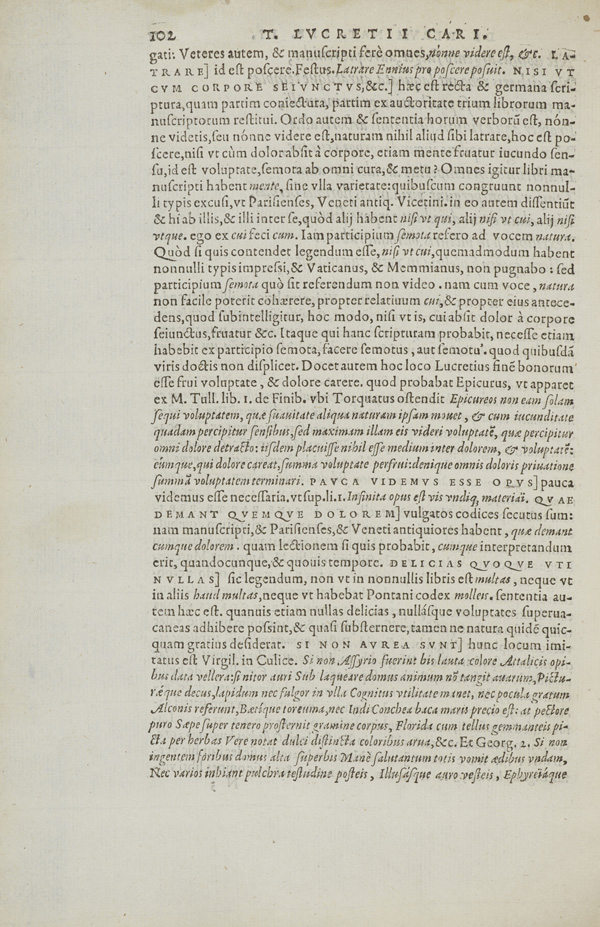 102 T. LVCRETII CARI.
gati: Veteres autem, & manuscripti ferè omnes, nonne videre est, &c. LA-
TRARE] id est poscere. Festus. Latrare Ennius pro poscere posuit. NISI VT
CVM CORPORE SEIVNCTVS, &c.] hæc est recta & germana scri-
ptura, quam partim coniectura, partim ex auctoritate trium librorum ma-
nuscriptorum restitui. Ordo autem & sententia horum verborũ est, nón-
ne videtis, seu nónne videre est, naturam nihil aliud sibi latrare, hoc est po-
scere, nisi vt cùm dolor absit à corpore, etiam mente fruatur iucundo sen-
su, id est voluptate, semota ab omni cura, & metu? Omnes igitur libri ma-
nuscripti habent mente, sine vlla varietate: quibuscum congruunt nonnul-
li typis excusi, vt Parisienses, Veneti antiq. Vicetini. in eo autem dissentiũt
& hi ab illis, & illi inter se, quòd alij habent nisi vt qui, alij nisi vt cui, alij nisi
vtque. ego ex cui feci cum. Iam participium semota refero ad vocem natura.
Quòd si quis contendet legendum esse, nisi vt cui, quemadmodum habent
nonnulli typis impressi, & Vaticanus, & Memmianus, non pugnabo: sed
participium semota quò sit referendum non video. nam cum voce, natura
non facile poterit cohærere, propter relatiuum cui, & propter eius antece-
dens, quod subintelligitur, hoc modo, nisi vt is, cui absit dolor à corpore
seiunctus, fruatur &c. Itaque qui hanc scripturam probabit, necesse etiam
habebit ex participio semota, facere semotus, aut semotu'. quod quibusdã
viris doctis non displicet. Docet autem hoc loco Lucretius finẽ bonorum
esse frui voluptate, & dolore carere. quod probabat Epicurus, vt apparet
ex M. Tull. lib. 1. de Finib. vbi Torquatus ostendit Epicureos non eam solam
sequi voluptatem, quæ suauitate aliqua naturam ipsam mouet, & cum iucunditate
quadam percipitur sensibus, sed maximam illam eis videri voluptatẽ, quæ percipitur
omni dolore detracto: iisdem placuisse nihil esse medium inter dolorem, & voluptatẽ:
eúmque, qui dolore careat, summa voluptate perfrui: denique omnis doloris priuatione
summã voluptatem terminari. PAVCA VIDEMVS ESSE OPVS] pauca
videmus esse necessaria. vt sup. li. 1. Infinita opus est vis vndiq, materiaï. QVAE
DEMANT QVEMQVE DOLOREM] vulgatos codices secutus sum:
nam manuscripti, & Parisienses, & Veneti antiquiores habent, quæ demant
cumque dolorem. quam lectionem si quis probabit, cumque interpretandum
erit, quandocunque, & quouis tempore. DELICIAS QVOQVE VTI
NVLLAS] sic legendum, non vt in nonnullis libris est multas, neque vt
in aliis haud multas, neque vt habebat Pontani codex molleis. sententia au-
tem hæc est. quanuis etiam nullas delicias, nullásque voluptates superua-
caneas adhibere possint, & quasi substernere, tamen ne natura quidẽ quic-
quam gratius desiderat. SI NON AVREA SVNT] hunc locum imi-
tatus est Virgil. in Culice. Si non Assyrio fuerint bis lauta colore Attalicis opi-
bus data vellera: si nitor auri Sub laqueare domus animum nõ tangit auarum, Pictu-
ræque decus, lapidum nec fulgor in vlla Cognitus vtilitate manet, nec pocula gratum
Alconis referunt, Bætique toreuma, nec Indi Conchea baca maris precio est: at pectore
puro Sæpe super tenero prosternit gramine corpus, Florida cum tellus gemmanteis pi-
cta per herbas Vere notat dulci distincta coloribus arua, &c. Et Georg. 2. Si non
ingentem foribus domus alta superbis Manè salutantum totis vomit ædibus vndam,
Nec varios inhiant pulchra testudine posteis, Illusásque auro vesteis, Ephyreïáque